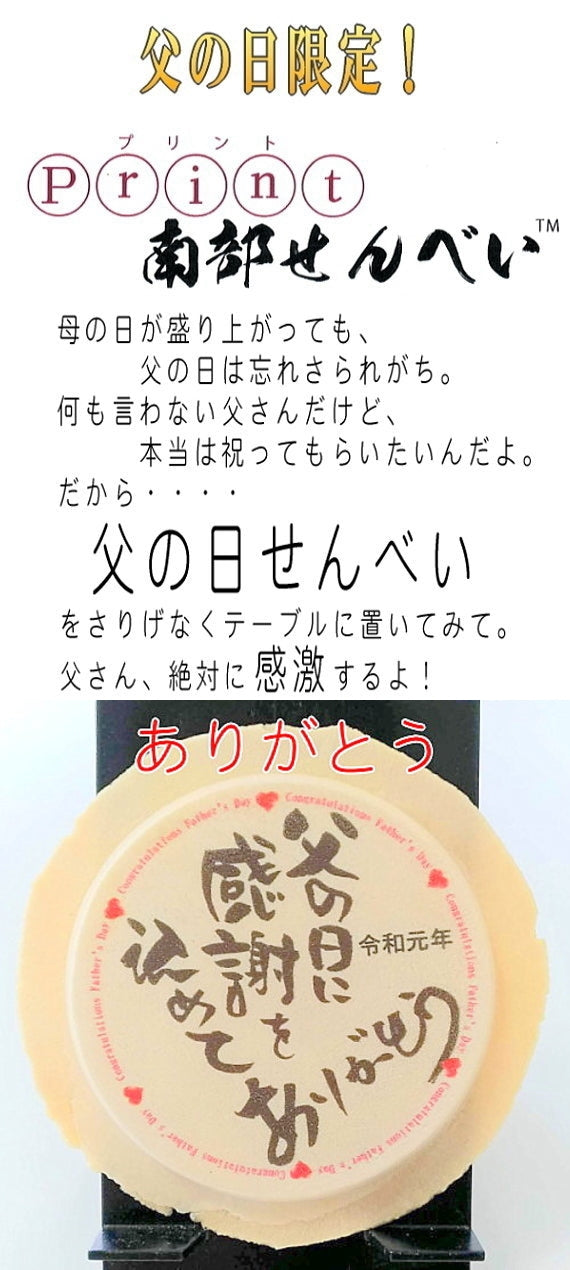 父の日限定！
プリント
Print
南部せんべい™
母の日が盛り上がっても、
父の日は忘れさられがち。
何も言わない父さんだけど、
本当は祝ってもらいたいんだよ。
だから・・・・
父の日せんべい
をさりげなくテーブルに置いてみて。
父さん、絶対に感激するよ！
ありがとう
Congratulations Father's Day
Congratulations Father's Day
Congratulations Father's Day
Congratulations Father's Day
Congratulations Father's Day
Congratulations Father's Day
Congratulations Father's Day
令和元年
父の日に
感謝を
込めて
ありがとう